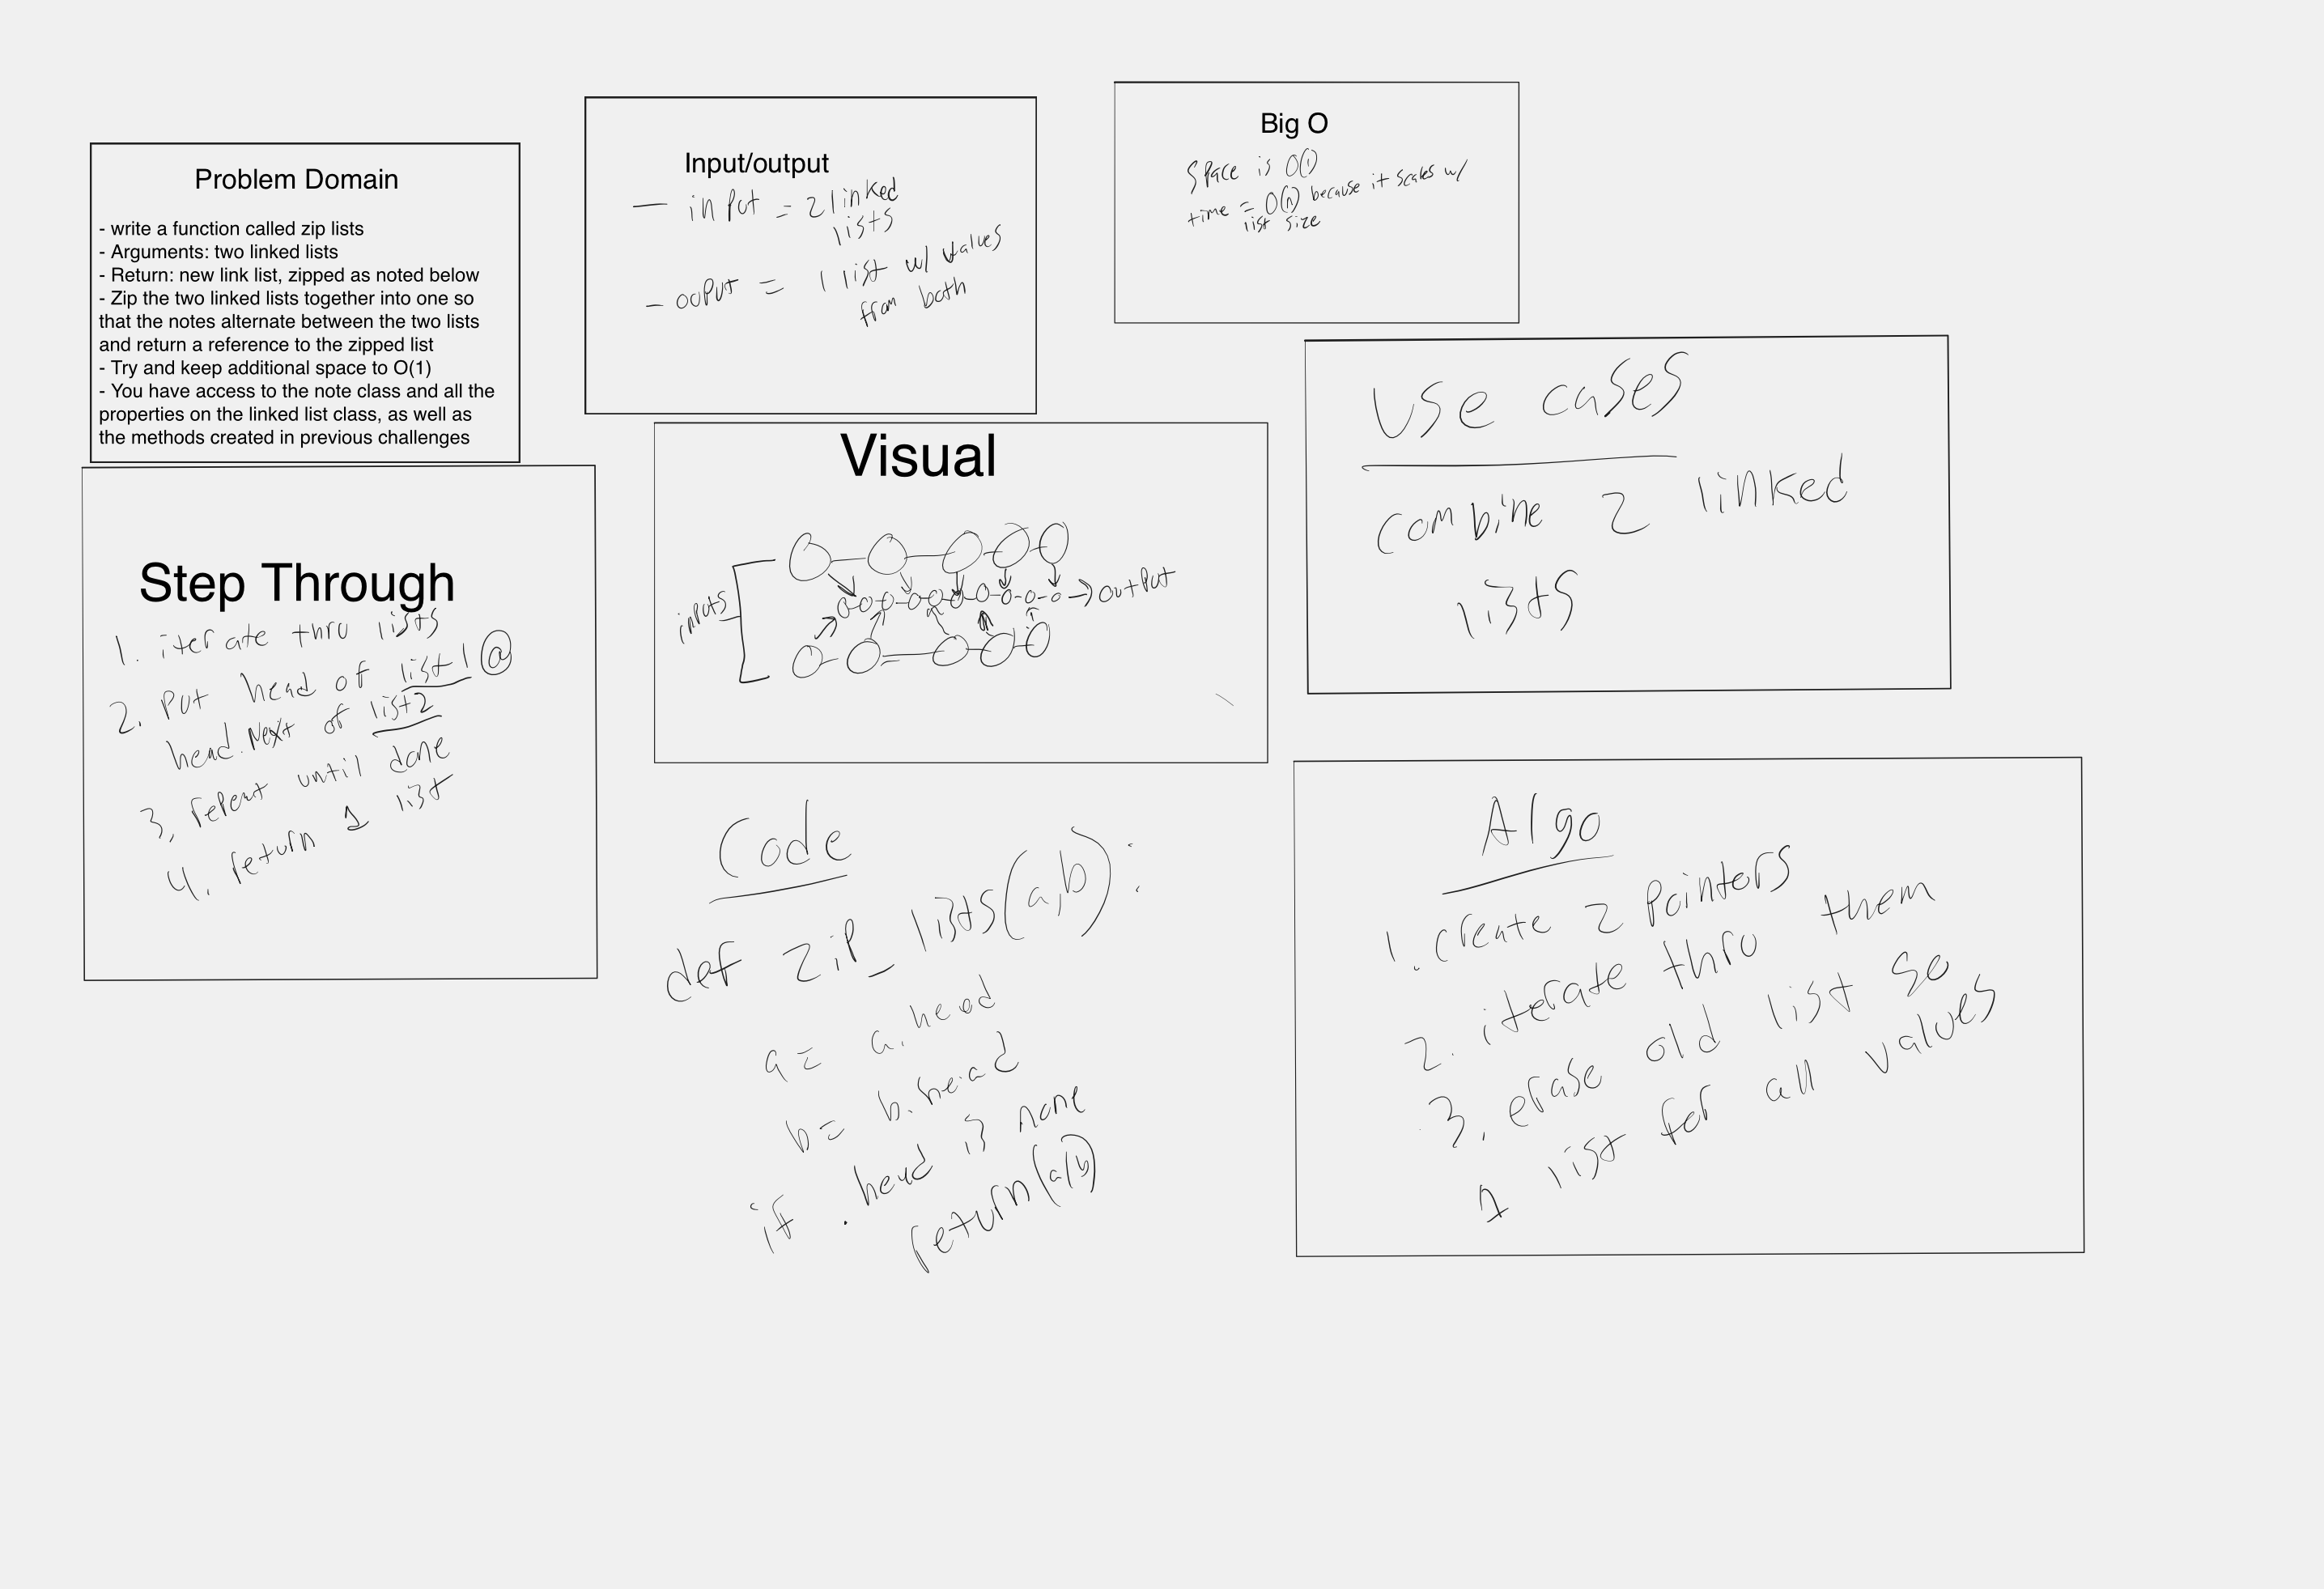 Problem Domain
- write a function called zip lists
- Arguments: two linked lists
- Return: new link list, zipped as noted below
- Zip the two linked lists together into one so
that the notes alternate between the two lists
and return a reference to the zipped list
- Try and keep additional space to O(1)
- You have access to the note class and all the
properties on the linked list class, as well as
the methods created in previous challenges
Input/output
- input = 2 linked
lists
- ooput = 1 list w/ values
from both
Big O
Space is O(1)
time = O(n) because it scales w/
list size
Step Through
1. iterate thro lists
2. Put head of list 1 @
head.next of list2
3. repeat until done
4. return 1 list
Visual
inputs
→ output
use cases
combine 2 linked
lists
Code
def zip_lists(a,b):
a = a.head
b = b.head
if .head is none
return(a/b)
Algo
1. create 2 pointers
2. iterate thro them
3. erase old list so
1 list for all values